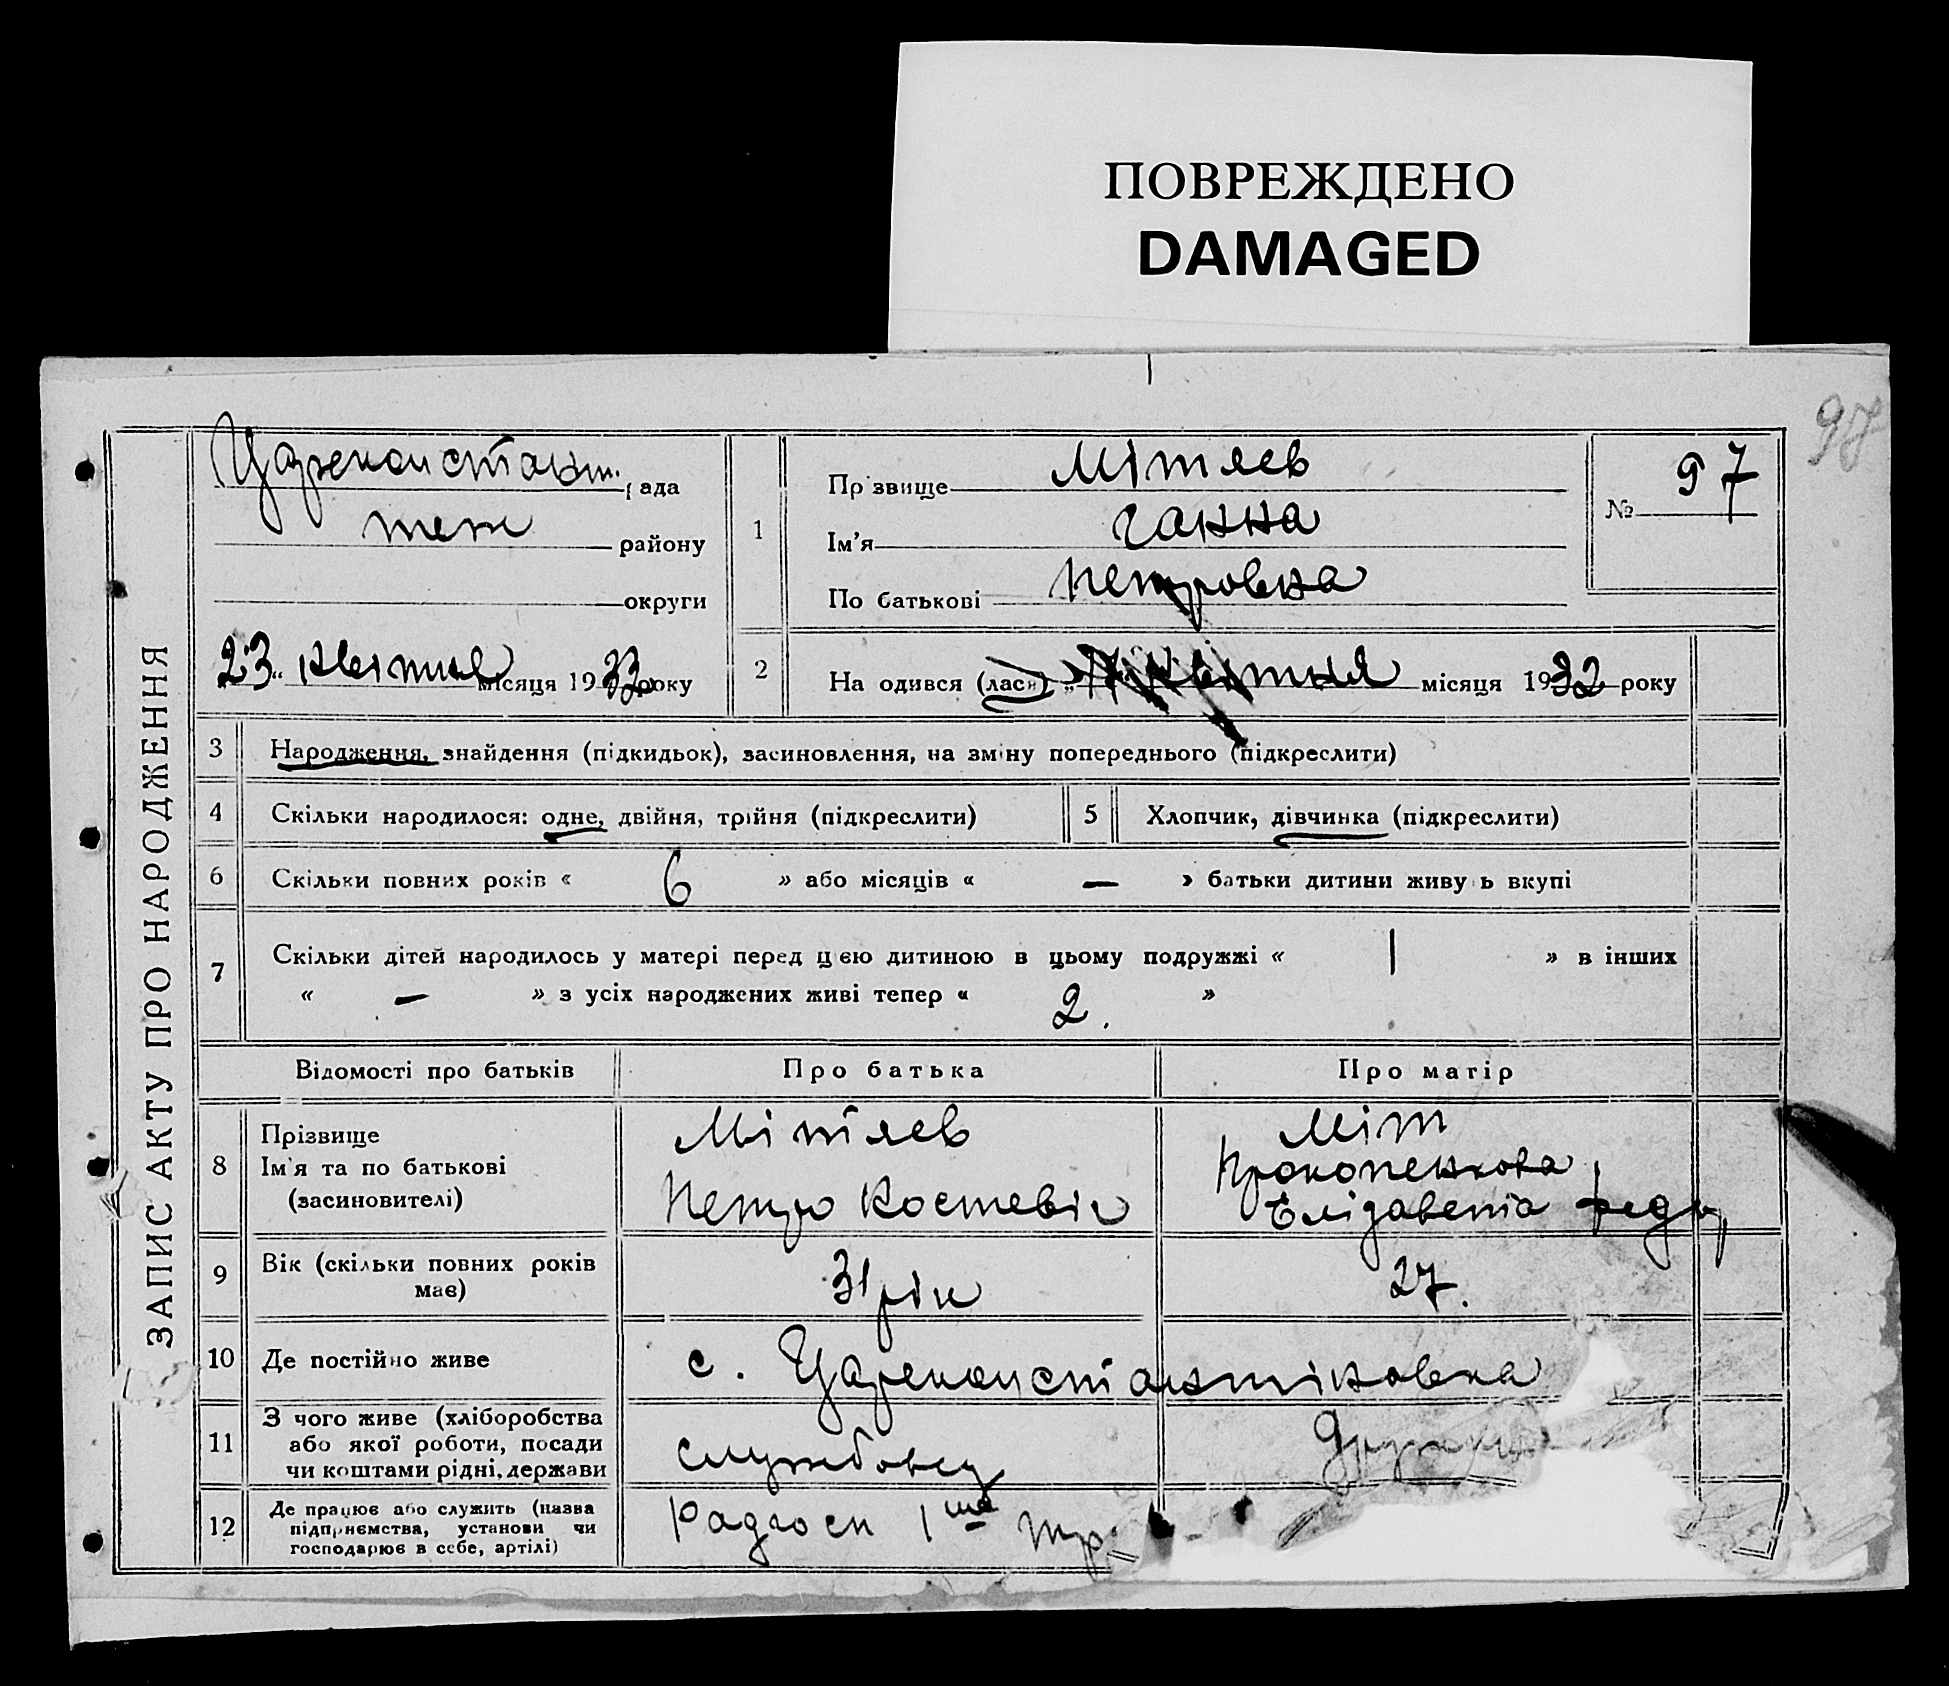 ПОВРЕЖДЕНО
DAMAGED
97
ЗАПИС АКТУ ПРО НАРОДЖЕННЯ
Цареконстант. рада
теж району
округи
23 квітня місяця 1932 року
1
Прізвище Мітяев
Ім'я Ганна
По батькові Петровна
№ 97
2
На одився (лася) квітня місяця 1932 року
3 Народження, знайдення (підкидьок), засиновлення, на зміну попереднього (підкреслити)
4 Скільки народилося: одне, двійня, трійня (підкреслити)
5 Хлопчик, дівчинка (підкреслити)
6 Скільки повних років « 6 » або місяців « — » батьки дитини живу ь вкупі
7 Скільки дітей народилось у матері перед цією дитиною в цьому подружжі « 1 » в інших
« — » з усіх народжених живі тепер « 2. »
Відомості про батьків
Про батька
Про матір
8
Прізвище
Ім'я та по батькові
(засиновителі)
Мітяев
Петро Костевіч
Міт
Прокопенкова
Елізавета Федор
9
Вік (скільки повних років
має)
31 рік
27.
10 Де постійно живе
с. Цареконстантіновка
11
З чого живе (хліборобства
або якої роботи, посади
чи коштами рідні, держави
службовец
12
Де працює або служить (назва
підприємства, установи чи
господарює в себе, артілі)
Радгосп 1